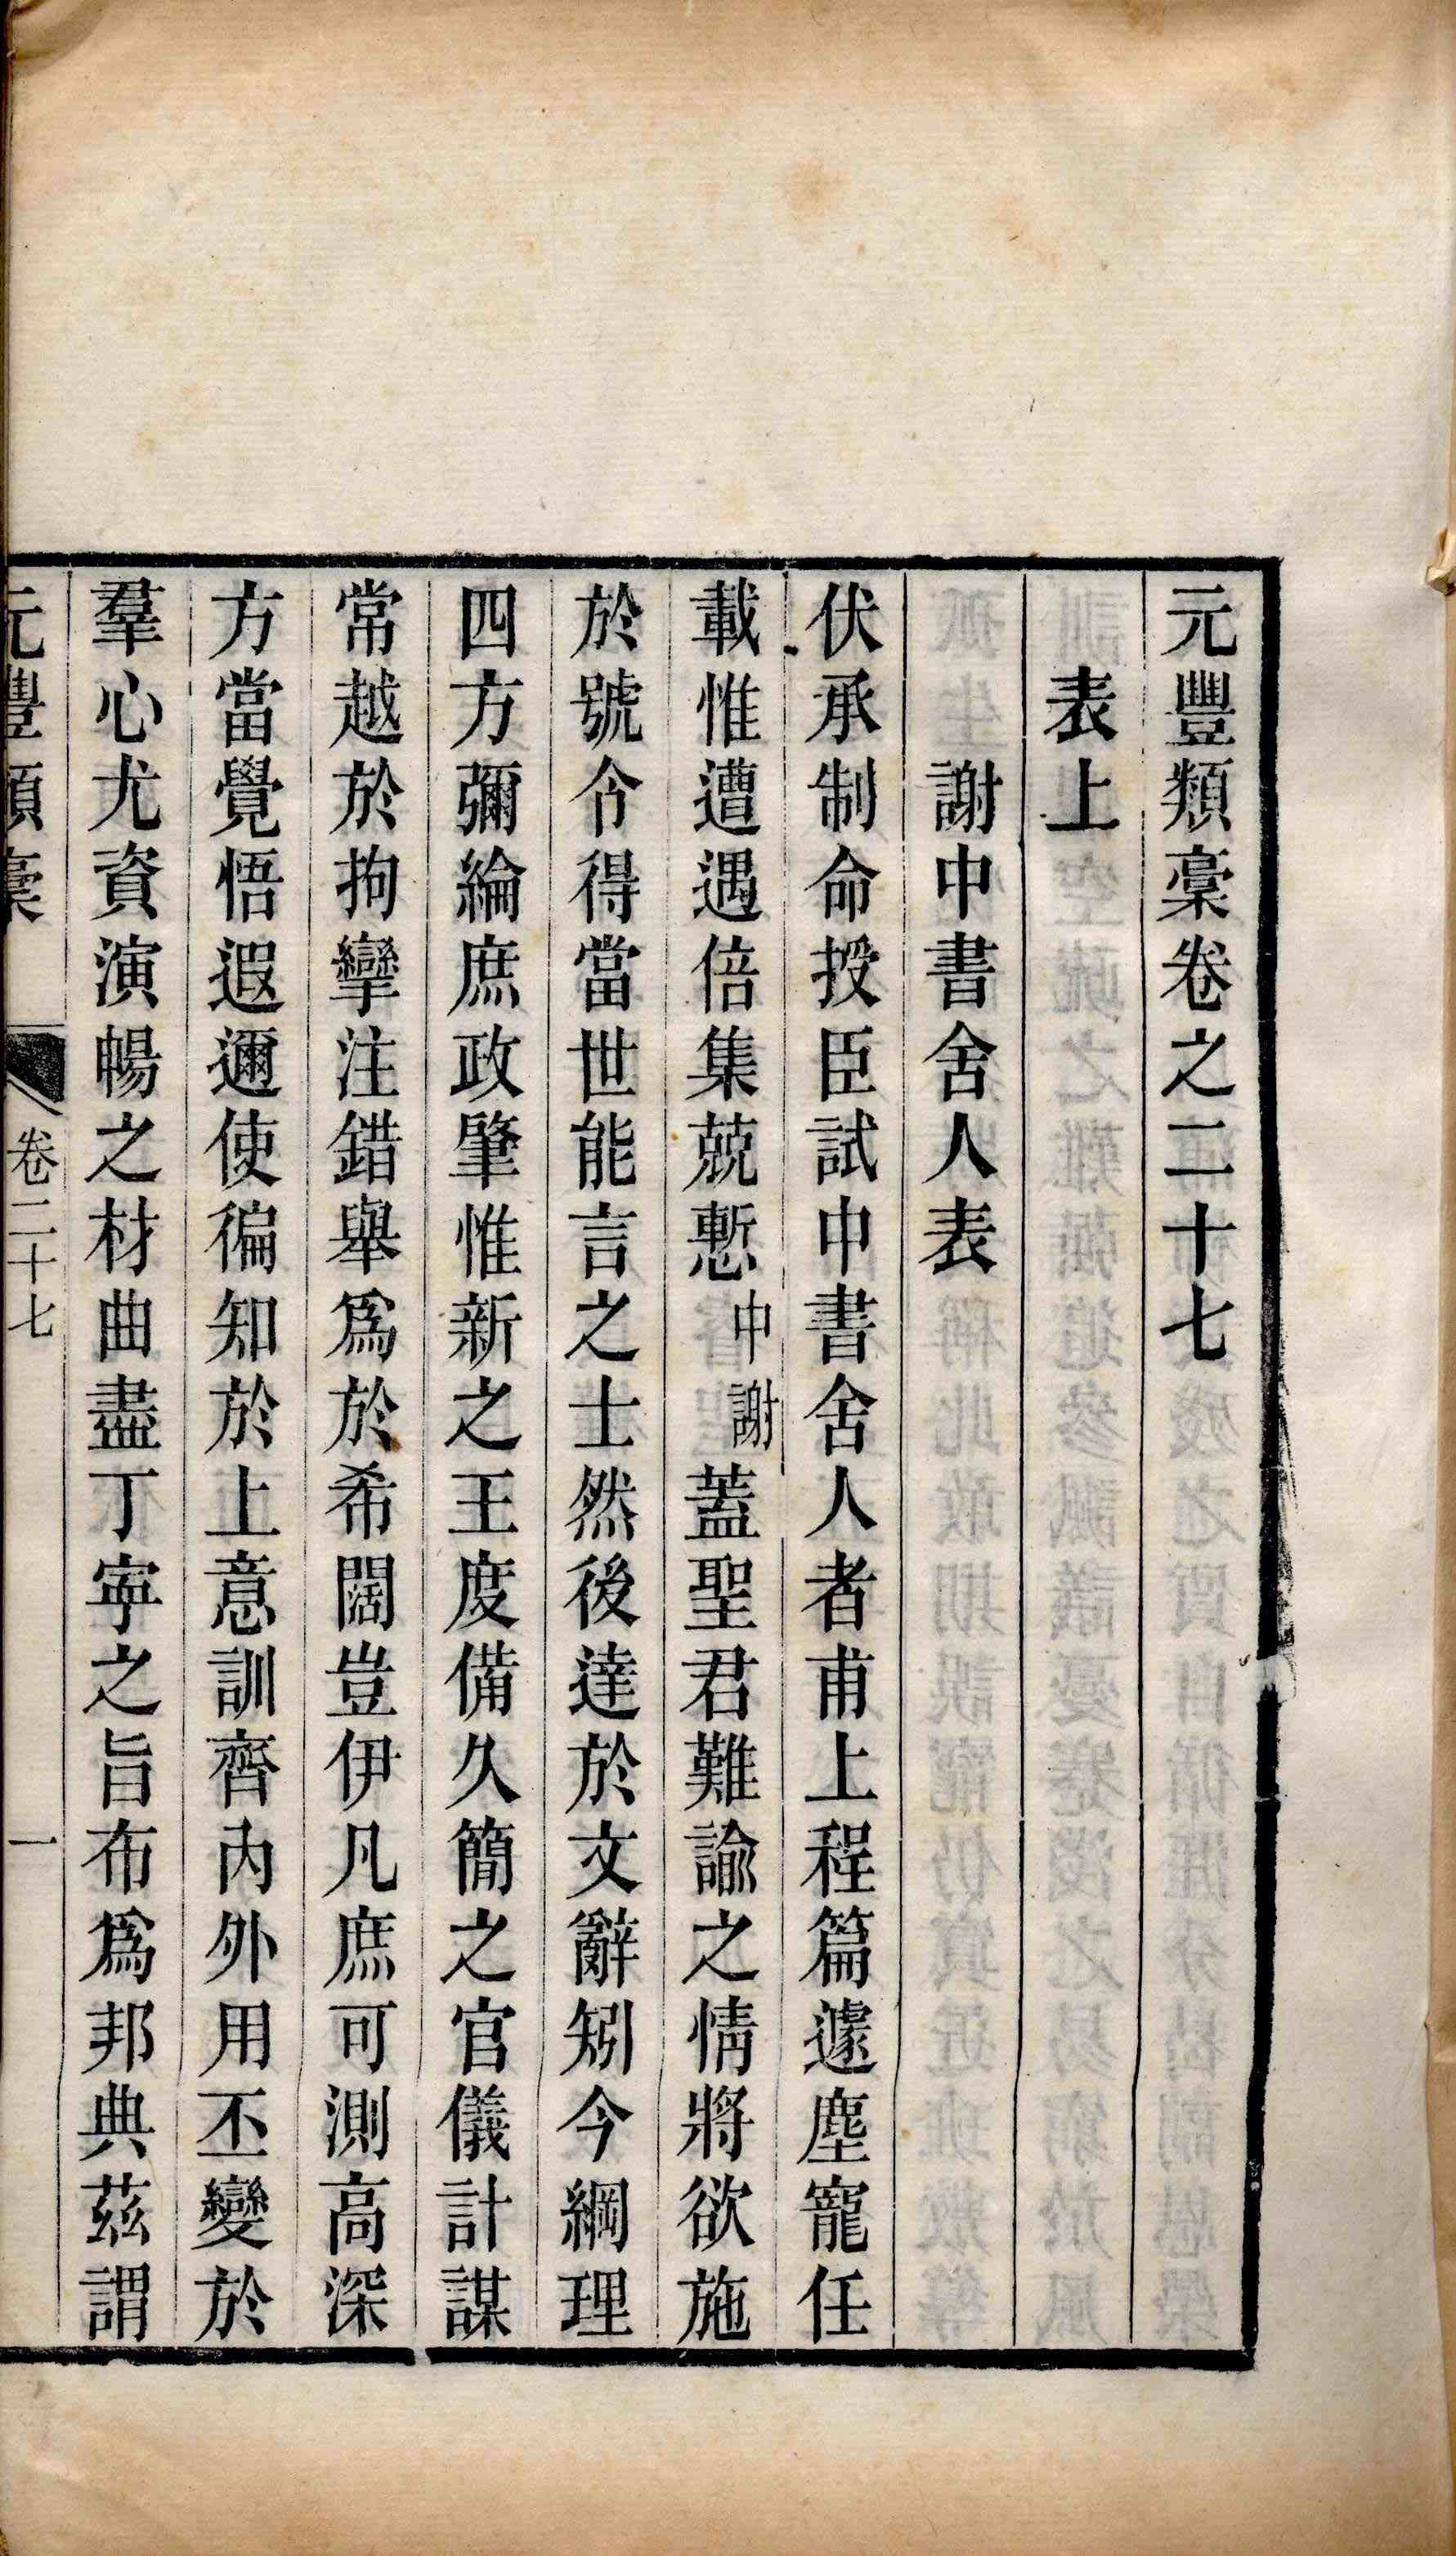 元豐類稾卷之二十七
表上
謝中書舍人表
伏承制命授臣試中書舍人者甫上程篇遽塵寵任
載惟遭遇倍集兢慙中謝蓋聖君難諭之情將欲施
於號令得當世能言之士然後達於文辭矧今綱理
四方彌綸庶政肇惟新之王度備久簡之官儀計謀
常越於拘攣注錯舉爲於希闊豈伊凡庶可測高深
方當覺悟遐邇使徧知於上意訓齊內外用丕變於
羣心尤資演暢之材曲盡丁寧之旨布爲邦典茲謂
元豐類稾 卷二十七 一